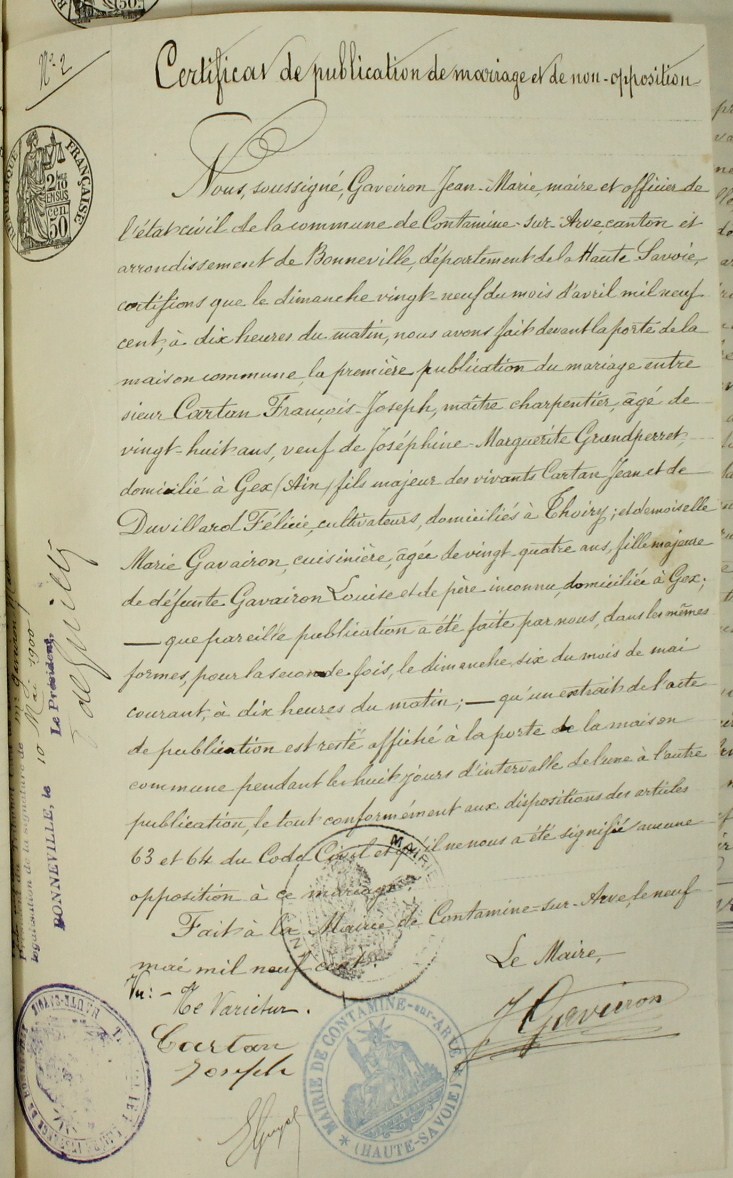 Nº 2
Certificat de publication de mariage et de non-opposition
RÉPUBLIQUE FRANÇAISE
2/10 EN SUS
50 cen
Nous, soussigné, Gaveiron Jean-Marie, maire et officier de
l'état civil de la commune de Contamine-sur-Arve canton et
arrondissement de Bonneville, département de la Haute Savoie,
certifions que le dimanche vingt-neuf du mois d'avril mil neuf
cent, à dix heures du matin, nous avons fait devant la porte de la
maison commune, la première publication du mariage entre
sieur Cartan François-Joseph, maître charpentier, âgé de
vingt-huit ans, veuf de Joséphine-Marguerite Grandperret,
domicilié à Gex (Ain) fils majeur des vivants Cartan Jean et de
Duvillard Félicie, cultivateurs, domiciliés à Thoiry; et demoiselle
Marie Gavairon, cuisinière, âgée de vingt-quatre ans, fille majeure
de défunte Gavairon Louise et de père inconnu, domiciliée à Gex;
— que pareille publication a été faite par nous, dans les mêmes
formes, pour la seconde fois, le dimanche six du mois de mai
courant, à dix heures du matin; — qu'un extrait de l'acte
de publication est resté affiché à la porte de la maison
commune pendant les huit jours d'intervalle de l'une à l'autre
publication, le tout conformément aux dispositions des articles
63 et 64 du Code Civil et qu'il ne nous a été signifié aucune
opposition à ce mariage.
Fait à la Mairie de Contamine-sur-Arve, le neuf
mai mil neuf cent.
Le Maire,
J Gaveiron
Vu: - Ne Varietur.
Cartan
Joseph
MAIRIE
MAIRIE DE CONTAMINE-sur-ARVE
(HAUTE-SAVOIE)
légalisation de la signature de Mr Gaveiron
BONNEVILLE, le 10 Mai 1900
Le Président,